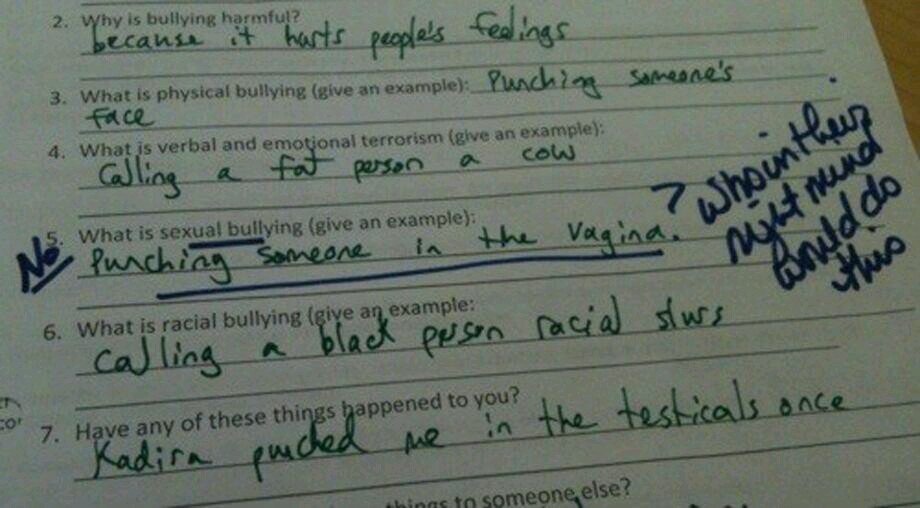 2. Why is bullying harmful?
because it hurts people's feelings
3. What is physical bullying (give an example): Punching someone's
face
4. What is verbal and emotional terrorism (give an example):
Calling a fat person a cow
5. What is sexual bullying (give an example):
Punching someone in the vagina.
No
? who in their
right mind
would do
this
6. What is racial bullying (give an example:
Calling a black person racial slurs
7. Have any of these things happened to you?
Kadira punched me in the testicals once
things to someone else?